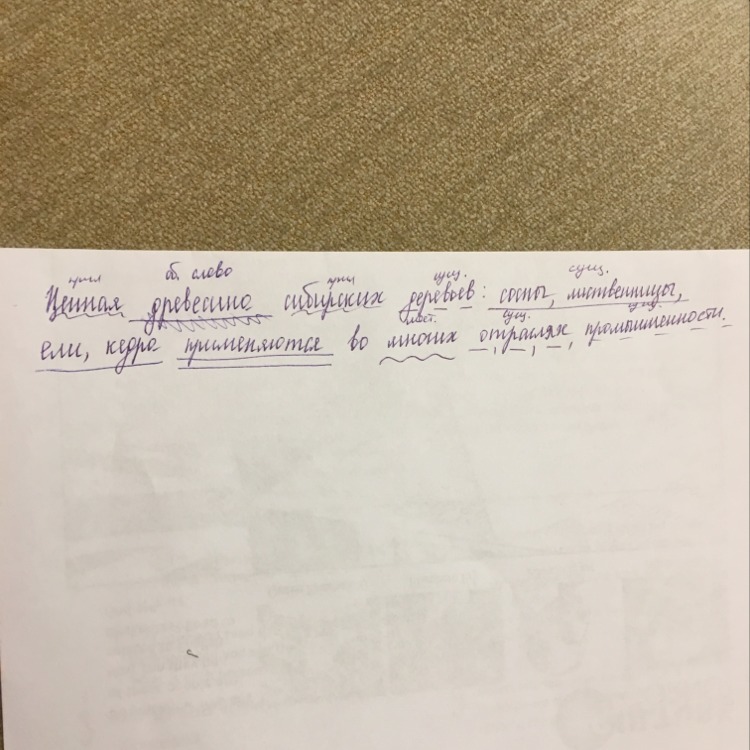 прил об. слово прил сущ. сущ.
Ценная древесина сибирских деревьев: сосны, лиственницы,
мест. сущ. сущ.
ели, кедра применяются во многих отраслях промышленности.